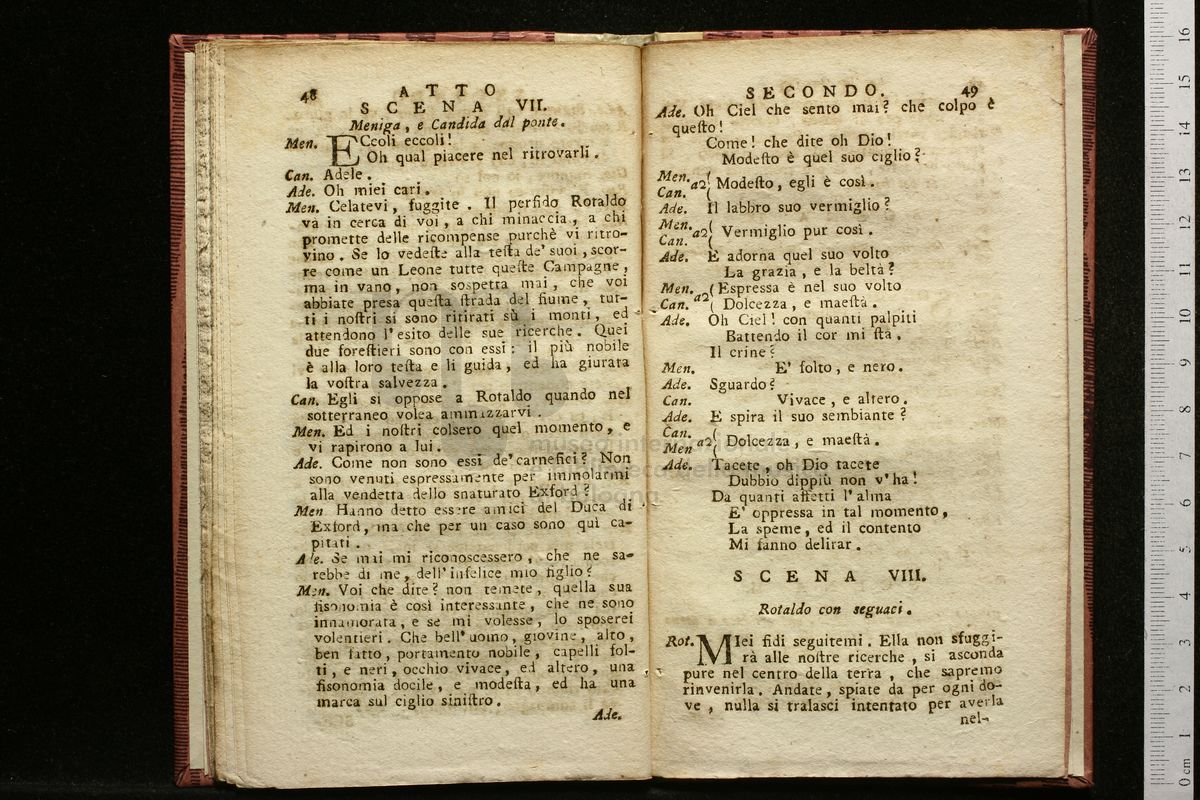 48
ATTO
SCENA VII.
Meniga, e Candida dal ponte.
Men. ECcoli eccoli!
Oh qual piacere nel ritrovarli.
Can. Adele.
Ade. Oh miei cari.
Men. Celatevi, fuggite. Il perfido Rotaldo
va in cerca di voi, a chi minaccia, a chi
promette delle ricompense purchè vi ritro-
vino. Se lo vedeſte alla teſta de' suoi, scor-
re come un Leone tutte queſte Campagne,
ma in vano, non sospetta mai, che voi
abbiate presa queſta ſtrada del fiume, tut-
ti i noſtri si sono ritirati sù i monti, ed
attendono l'esito delle sue ricerche. Quei
due foreſtieri sono con essi: il più nobile
è alla loro teſta e li guida, ed ha giurata
la voſtra salvezza.
Can. Egli si oppose a Rotaldo quando nel
sotterraneo volea ammazzarvi.
Men. Ed i noſtri colsero quel momento, e
vi rapirono a lui.
Ade. Come non sono essi de' carnefici? Non
sono venuti espressamente per immolarmi
alla vendetta dello snaturato Exford?
Men Hanno detto essere amici del Duca di
Exford, ma che per un caso sono quì ca-
pitati.
Ade. Se mai mi riconoscessero, che ne sa-
rebbe di me, dell'infelice mio figlio?
Men. Voi che dite? non temete, quella sua
fisonomia è così interessante, che ne sono
innamorata, e se mi volesse, lo sposerei
volentieri. Che bell'uomo, giovine, alto,
ben fatto, portamento nobile, capelli fol-
ti, e neri, occhio vivace, ed altero, una
fisonomia docile, e modeſta, ed ha una
marca sul ciglio siniſtro.
Ade.
SECONDO.
49
Ade. Oh Ciel che sento mai? che colpo è
queſto!
Come! che dite oh Dio!
Modeſto è quel suo ciglio?
Men.
Can. a2 ( Modeſto, egli è così.
Ade. Il labbro suo vermiglio?
Men.
Can. a2 ( Vermiglio pur così.
Ade. E adorna quel suo volto
La grazia, e la beltà?
Men. a2 ( Espressa è nel suo volto
Can. ( Dolcezza, e maeſtà.
Ade. Oh Ciel! con quanti palpiti
Battendo il cor mi ſta.
Il crine?
Men. E' folto, e nero.
Ade. Sguardo?
Can. Vivace, e altero.
Ade. E spira il suo sembiante?
Can.
Men a2 ( Dolcezza, e maeſtà.
Ade. Tacete, oh Dio tacete
Dubbio dippiù non v'ha!
Da quanti affetti l'alma
E' oppressa in tal momento,
La speme, ed il contento
Mi fanno delirar.
SCENA VIII.
Rotaldo con seguaci.
Rot. MIei fidi seguitemi. Ella non sfuggi-
rà alle noſtre ricerche, si asconda
pure nel centro della terra, che sapremo
rinvenirla. Andate, spiate da per ogni do-
ve, nulla si tralasci intentato per averla
nel-
0 cm 1 2 3 4 5 6 7 8 9 10 11 12 13 14 15 16